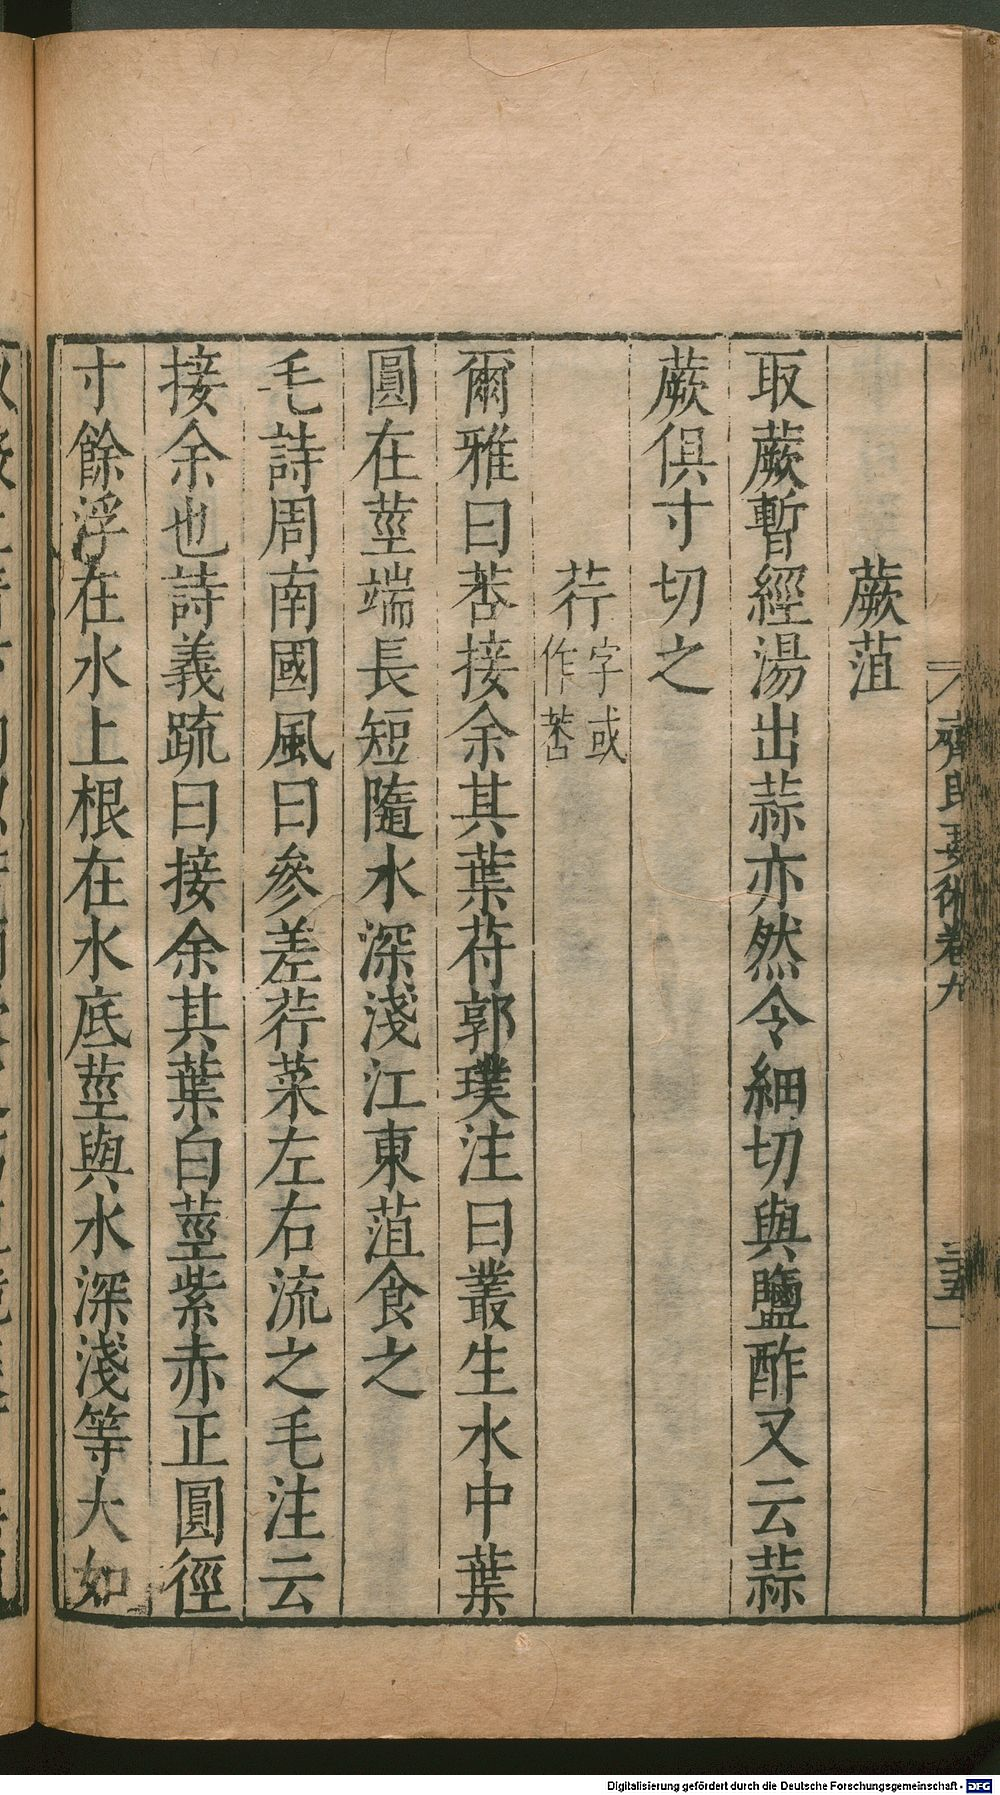 蕨菹
取蕨暫經湯出蒜亦然令細切與鹽酢又云蒜
蕨俱寸切之
荇字或作莕
爾雅曰莕接余其葉苻郭璞注曰叢生水中葉
圓在莖端長短隨水深淺江東菹食之
毛詩周南國風曰參差荇菜左右流之毛注云
接余也詩義疏曰接余其葉白莖紫赤正圓徑
寸餘浮在水上根在水底莖與水深淺等大如
齊民要術卷九
三五
Digitalisierung gefördert durch die Deutsche Forschungsgemeinschaft - DFG